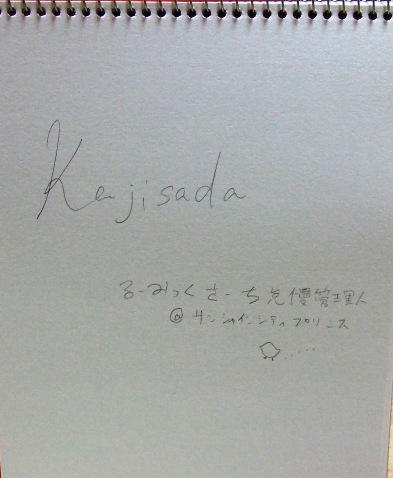 Kajisada
るーみっくさーち 管理人
@ サンシャインシティプリンス